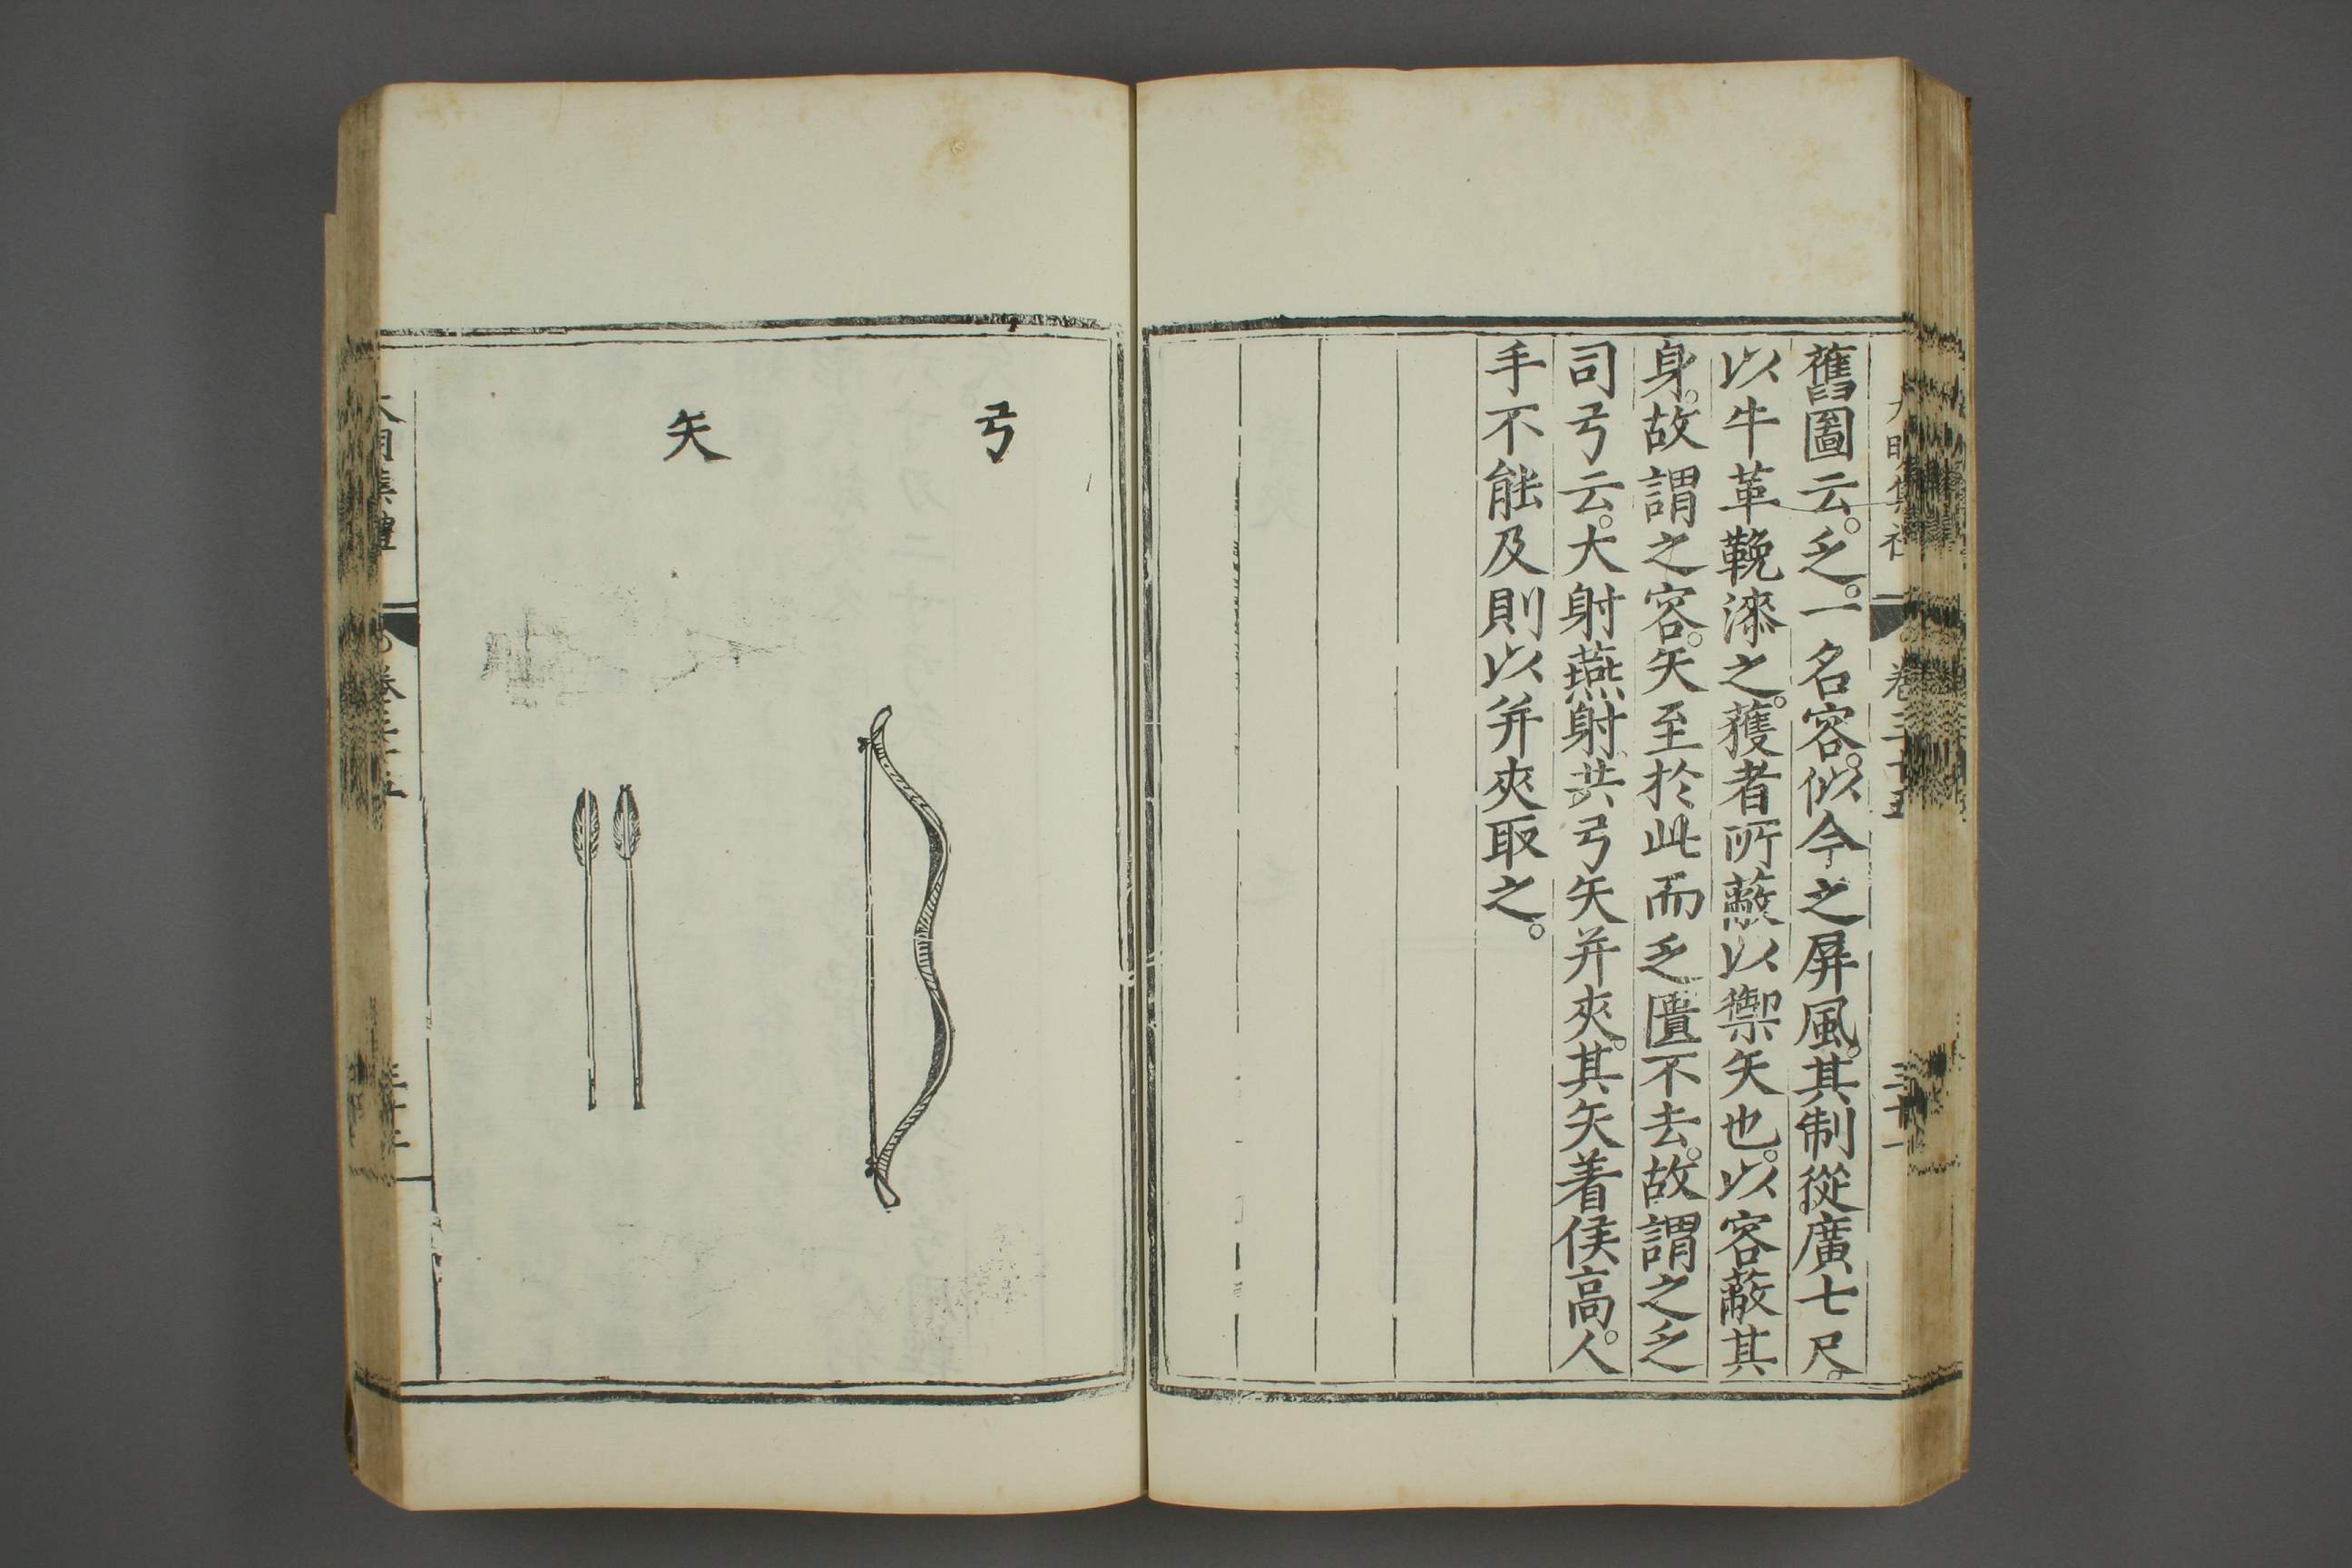 舊圖云。乏。一名容。似今之屏風。其制從廣七尺。
以牛革鞔漆之。獲者所蔽以禦矢也。以容蔽其
身。故謂之容。矢至於此而乏匱不去。故謂之乏
司弓云。大射燕射共弓矢并夾。其矢着侯高。人
手不能及則以并夾取之。
大明集禮 卷三十五 三十一
弓
矢
大明集禮 卷三十五 三十二